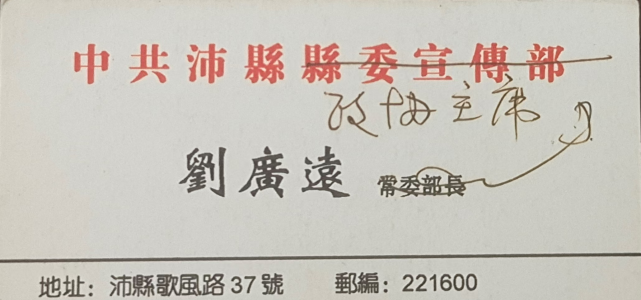 中共沛縣縣委宣傳部
政协主席
劉廣遠 常委部長
地址：沛縣歌風路37號 郵編：221600